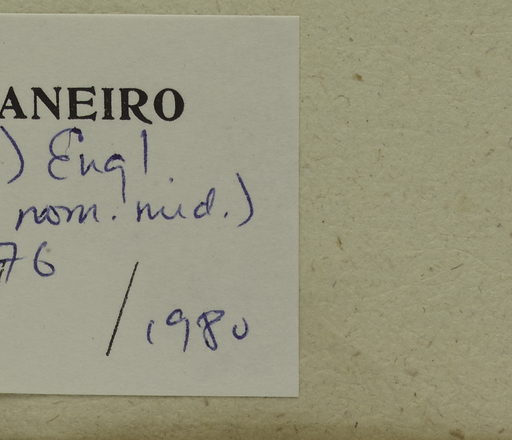 ANEIRO
) Engl.
nom. nud.)
76
/ 1980